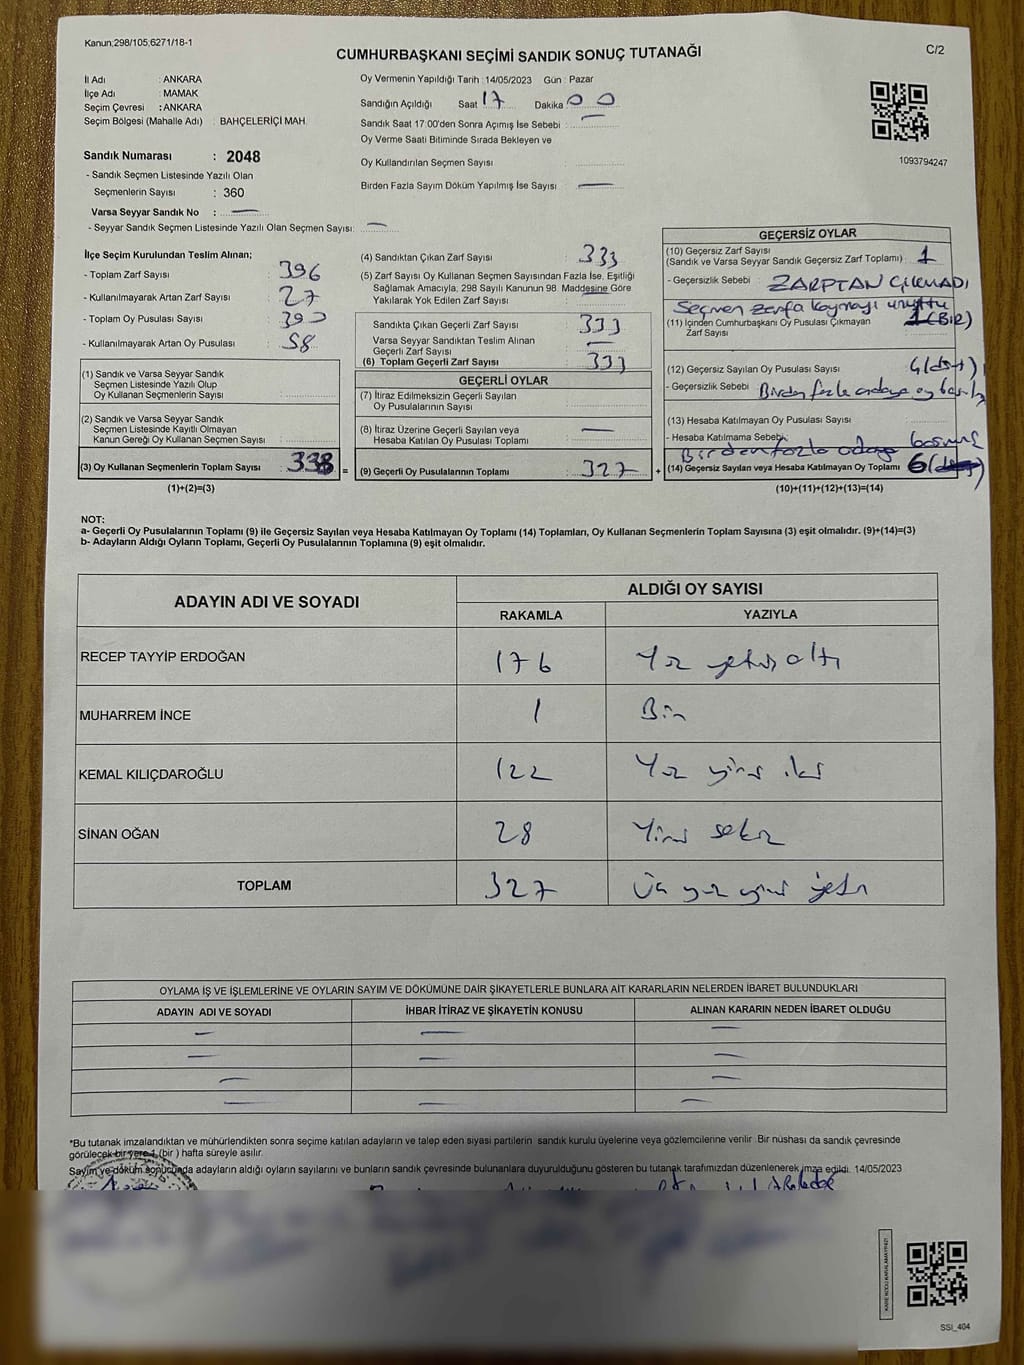 Kanun;298/105,6271/18-1
CUMHURBAŞKANI SEÇİMİ SANDIK SONUÇ TUTANAĞI
C/2
İl Adı : ANKARA
İlçe Adı : MAMAK
Seçim Çevresi : ANKARA
Seçim Bölgesi (Mahalle Adı) : BAHÇELERİÇİ MAH.
Sandık Numarası : 2048
- Sandık Seçmen Listesinde Yazılı Olan
Seçmenlerin Sayısı : 360
Varsa Seyyar Sandık No : —
- Seyyar Sandık Seçmen Listesinde Yazılı Olan Seçmen Sayısı: —
Oy Vermenin Yapıldığı Tarih : 14/05/2023 Gün : Pazar
Sandığın Açıldığı Saat 17 Dakika 00
Sandık Saat 17:00'den Sonra Açımış İse Sebebi : —
Oy Verme Saati Bitiminde Sırada Bekleyen ve
Oy Kullandırılan Seçmen Sayısı :
Birden Fazla Sayım Döküm Yapılmış İse Sayısı : —
1093794247
İlçe Seçim Kurulundan Teslim Alınan;
- Toplam Zarf Sayısı : 396
- Kullanılmayarak Artan Zarf Sayısı : 27
- Toplam Oy Pusulası Sayısı :
- Kullanılmayarak Artan Oy Pusulası : 58
(1) Sandık ve Varsa Seyyar Sandık
Seçmen Listesinde Yazılı Olup
Oy Kullanan Seçmenlerin Sayısı :
(2) Sandık ve Varsa Seyyar Sandık
Seçmen Listesinde Kayıtlı Olmayan
Kanun Gereği Oy Kullanan Seçmen Sayısı :
(3) Oy Kullanan Seçmenlerin Toplam Sayısı : =
(1)+(2)=(3)
(4) Sandıktan Çıkan Zarf Sayısı : 333
(5) Zarf Sayısı Oy Kullanan Seçmen Sayısından Fazla İse, Eşitliği
Sağlamak Amacıyla, 298 Sayılı Kanunun 98. Maddesine Göre
Yakılarak Yok Edilen Zarf Sayısı : —
Sandıkta Çıkan Geçerli Zarf Sayısı : 333
Varsa Seyyar Sandıktan Teslim Alınan
Geçerli Zarf Sayısı : —
(6) Toplam Geçerli Zarf Sayısı : 333
GEÇERLİ OYLAR
(7) İtiraz Edilmeksizin Geçerli Sayılan
Oy Pusulalarının Sayısı :
(8) İtiraz Üzerine Geçerli Sayılan veya
Hesaba Katılan Oy Pusulası Toplamı : —
(9) Geçerli Oy Pusulalarının Toplamı : 327 +
GEÇERSİZ OYLAR
(10) Geçersiz Zarf Sayısı
(Sandık ve Varsa Seyyar Sandık Geçersiz Zarf Toplamı) : 1
- Geçersizlik Sebebi : ZARFTAN ÇIKMADI
Seçmen zarfa koymayı unuttu
(11) İçinden Cumhurbaşkanı Oy Pusulası Çıkmayan 1 (BİR)
Zarf Sayısı
(12) Geçersiz Sayılan Oy Pusulası Sayısı : 4 (dört)
- Geçersizlik Sebebi : Birden fazla adaya oy basılış
(13) Hesaba Katılmayan Oy Pusulası Sayısı :
- Hesaba Katılmama Sebebi: Birden fazla adaya basmış
(14) Geçersiz Sayılan veya Hesaba Katılmayan Oy Toplamı : 6
(10)+(11)+(12)+(13)=(14)
NOT:
a- Geçerli Oy Pusulalarının Toplamı (9) ile Geçersiz Sayılan veya Hesaba Katılmayan Oy Toplamı (14) Toplamları, Oy Kullanan Seçmenlerin Toplam Sayısına (3) eşit olmalıdır. (9)+(14)=(3)
b- Adayların Aldığı Oyların Toplamı, Geçerli Oy Pusulalarının Toplamına (9) eşit olmalıdır.
ADAYIN ADI VE SOYADI
ALDIĞI OY SAYISI
RAKAMLA YAZIYLA
RECEP TAYYİP ERDOĞAN 176 Yüz yetmiş altı
MUHARREM İNCE 1 Bir
KEMAL KILIÇDAROĞLU 122 Yüz yirmi iki
SİNAN OĞAN 28 Yirmi sekiz
TOPLAM 327 Üç yüz yirmi yedi
OYLAMA İŞ VE İŞLEMLERİNE VE OYLARIN SAYIM VE DÖKÜMÜNE DAİR ŞİKAYETLERLE BUNLARA AİT KARARLARIN NELERDEN İBARET BULUNDUKLARI
ADAYIN ADI VE SOYADI İHBAR İTİRAZ VE ŞİKAYETİN KONUSU ALINAN KARARIN NEDEN İBARET OLDUĞU
— — —
— — —
— —
— — —
*Bu tutanak imzalandıktan ve mühürlendikten sonra seçime katılan adayların ve talep eden siyasi partilerin sandık kurulu üyelerine veya gözlemcilerine verilir. Bir nüshası da sandık çevresinde
görülecek bir yere 1 (bir ) hafta süreyle asılır.
Sayım ve döküm sonucunda adayların aldığı oyların sayılarını ve bunların sandık çevresinde bulunanlara duyurulduğunu gösteren bu tutanak tarafımızdan düzenlenerek imza edildi. 14/05/2023
SSI_404